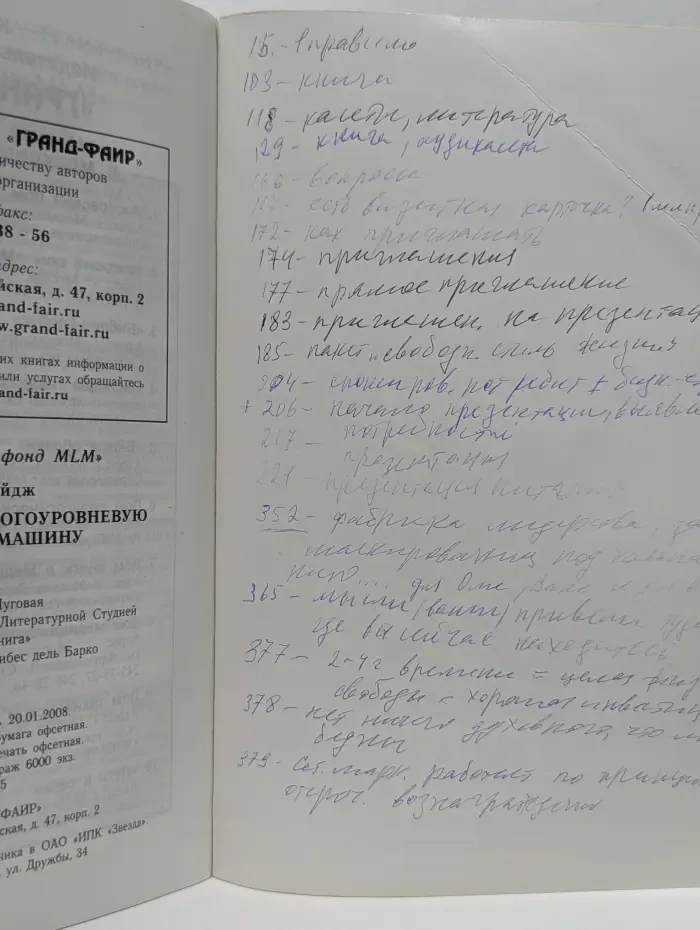 «ГРАНД-ФАИР»
ичеству авторов
организации
факс:
38 - 56
дрес:
йская, д. 47, корп. 2
and-fair.ru
w.grand-fair.ru
их книгах информации о
или услугах обращайтесь
and-fair.ru
фонд MLM»
йдж
ОГОУРОВНЕВУЮ
МАШИНУ
Луговая
Литературной Студией
нига»
ибес дель Барко
20.01.2008.
бумага офсетная.
ечать офсетная.
раж 6000 экз.
5
ФАИР»
ская, д. 47, корп. 2
чника в ОАО «ИПК «Звезда».
, ул. Дружбы, 34
15. - правило
103 - книга
118 - кассеты, литература
129 - книга, аудиокассеты
166 - вопросы
167 - есть визитная карточка?
172 - как приглашать
174 - приглашения
177 - прямое приглашение
183 - приглашен. на презентац
185 - пакет „свободн. стиль жизни"
204 - спонсиров. потребит +
+ 206 - начало презентации, выявле
217 - потребностей
презентация
221 - презентация
352 - фабрика лидерства,
под
нию.... для
365 - мысли (ваши) привели туда
где вы сейчас находитесь
377 - 2-4 г времени = целая
свободы = хорошая инвестиц
378 - нет ничего духовного, что
бедны
379 - Сет. марк. работает по принцип
отсроч. вознаграждения